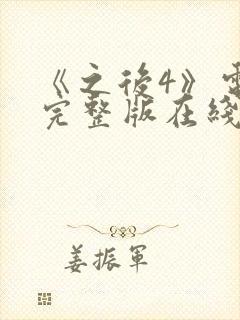 《之後4》電
完整版在綫
姜振軍